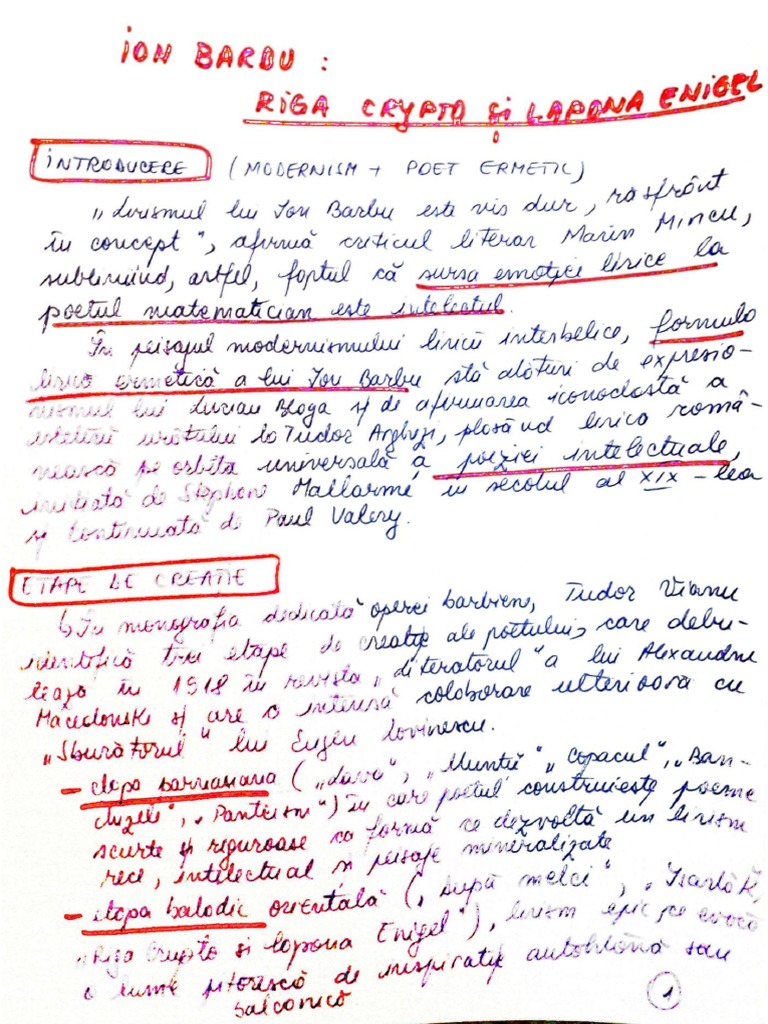 ION BARBU :
RIGA CRYPTO și LAPONA ENIGEL
INTRODUCERE (MODERNISM + POET ERMETIC)
„Lirismul lui Ion Barbu este vis dur, răsfrânt
în concept", afirmă criticul literar Marin Mincu,
subliniind, astfel, faptul că sursa emoției lirice la
poetul matematician este intelectul.
În peisajul modernismului liricii interbelice, formula
lirică ermetică a lui Ion Barbu stă alături de expresio-
nismul lui Lucian Blaga și de afirmarea iconoclastă a
esteticii urâtului la Tudor Arghezi, plasând lirica româ-
nească pe orbita universală a poeziei intelectuale,
inițiată de Stephane Mallarmé în secolul al XIX-lea
și continuată de Paul Valery.
ETAPE DE CREAȚIE
↳ În monografia dedicată operei barbiene, Tudor Vianu
identifică trei etape de creație ale poetului, care debu-
tează în 1918 în revista „Literatorul" a lui Alexandru
Macedonski și are o intensă colaborare ulterioară cu
„Sburătorul" lui Eugen Lovinescu.
- etapa parnasiană („Lava", „Munții", „Copacul", „Ban-
chizele", „Panteism") în care poetul construiește poeme
scurte și riguroase ca formă ce dezvoltă un lirism
rece, intelectual și peisaje mineralizate
- etapa baladic orientală („După melci", „Isarlîk",
„Riga Crypto și lapona Enigel"), lirism epic ce evocă
o lume pitorească de inspirație autohtonă sau
balcanică
1